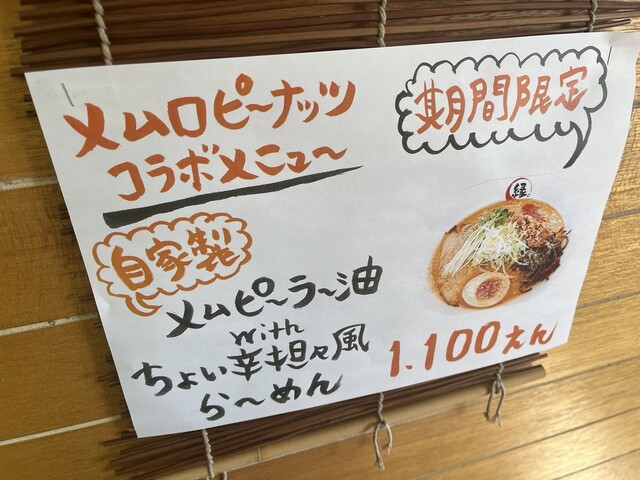 メムロピ〜ナッツ
コラボメニュ〜
期間限定
自家製
メムピ〜ラ〜油
with
ちょい辛担々風
ら〜めん
経
1.100えん